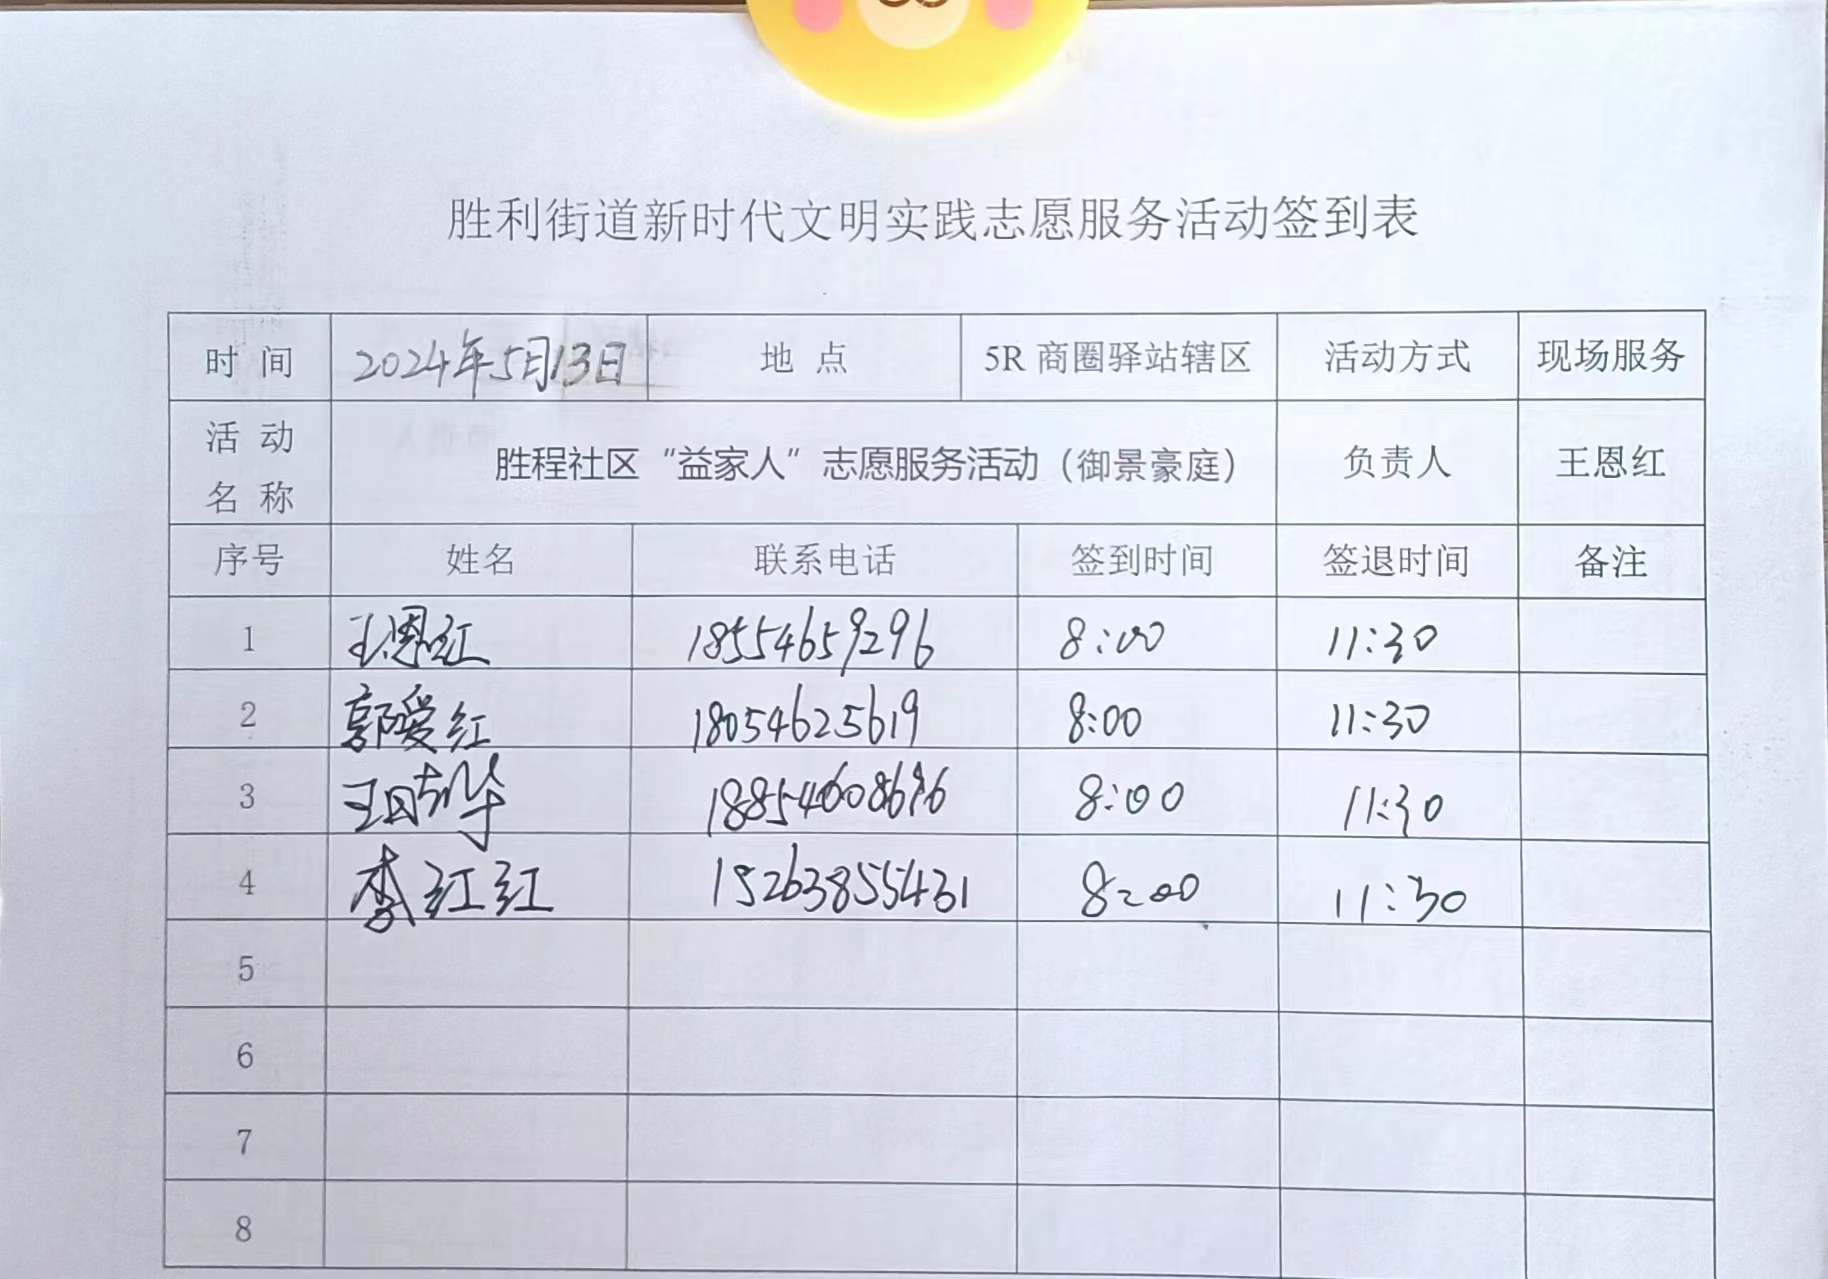 胜利街道新时代文明实践志愿服务活动签到表
时间 2024年5月13日 地点 5R商圈驿站辖区 活动方式 现场服务
活动名称 胜程社区“益家人”志愿服务活动（御景豪庭） 负责人 王恩红
序号 姓名 联系电话 签到时间 签退时间 备注
1 王恩红 18554659296 8:00 11:30
2 郭爱红 18054625619 8:00 11:30
3 王 华 8:00 11:30
4 李红红 15263855431 8:00 11:30
5
6
7
8